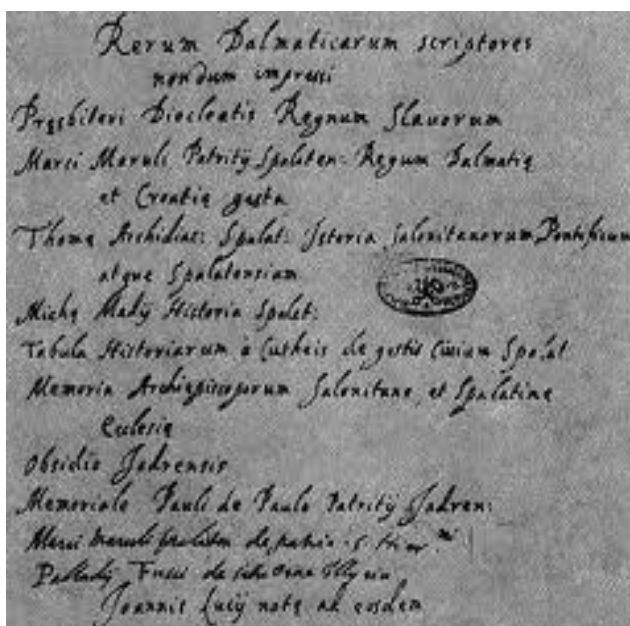 Rerum Dalmaticarum scriptores
nondum impressi
Pręsbiteri Diocleatis Regnum Slauorum
Marci Maruli Patritij Spalaten: Regum Dalmatię
et Croatię gesta
Thomę Archidiac: Spalat: Istoria Salonitanorum Pontificum
atque Spalatensium
Michę Madij Historia Spalat:
Tabula Historiarum à Cutheis de gestis Civium Spalat
Memoria Archiepiscoporum Salonitanę et Spalatinę
Eclesię
Obsidio Jadrensis
Memoriale Pauli de Paulo Patritij Jadren:
Marci Maruli Spalaten de patria S. Hier
Palladij Fusci de situ Orae Illyrici
Joannis Lucij notę ad eosdem